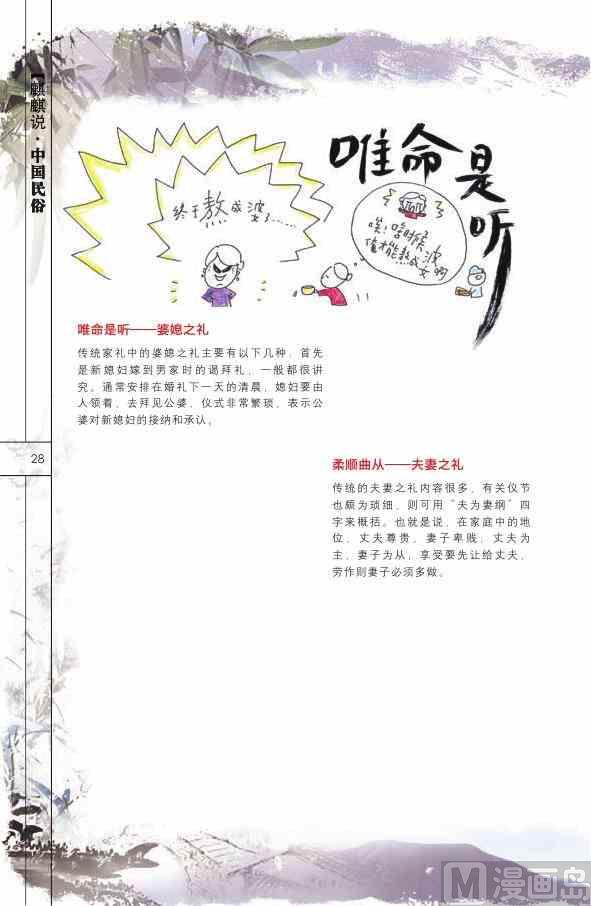 麒麟说·中国民俗
唯命是听
终于熬成婆了……
唉!啥时候
俺才能熬成婆
啊
唯命是听——婆媳之礼
传统家礼中的婆媳之礼主要有以下几种，首先
是新媳妇嫁到男家时的谒拜礼，一般都很讲
究。通常安排在婚礼下一天的清晨，媳妇要由
人领着，去拜见公婆，仪式非常繁琐，表示公
婆对新媳妇的接纳和承认。
28
柔顺曲从——夫妻之礼
传统的夫妻之礼内容很多，有关仪节
也颇为琐细，则可用“夫为妻纲”四
字来概括。也就是说，在家庭中的地
位，丈夫尊贵，妻子卑贱；丈夫为
主，妻子为从，享受要先让给丈夫，
劳作则妻子必须多做。
M漫画岛